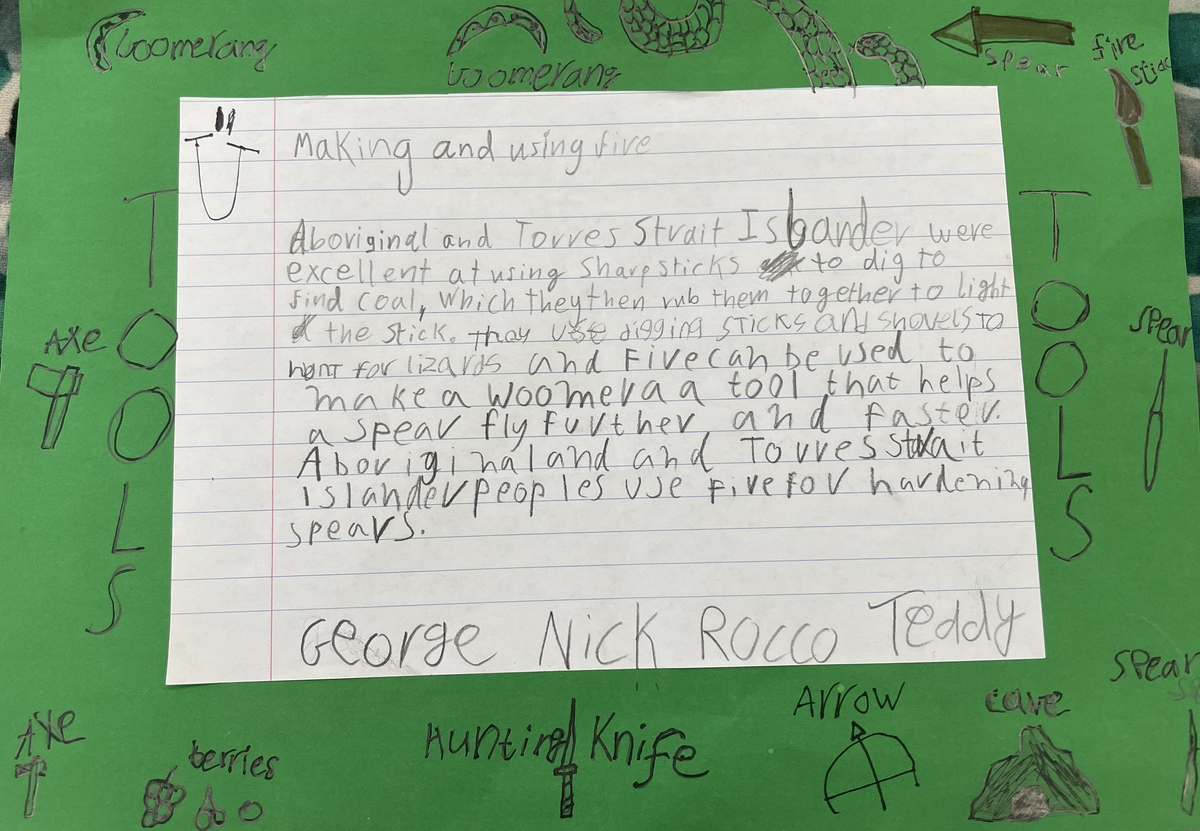 boomerang
boomerang
spear
fire
stick
Making and using fire
Aboriginal and Torres Strait Islander were
excellent at using Sharp sticks to dig to
find coal, which they then rub them together to light
the stick. they use digging sticks and shovels to
hunt for lizards and Fire can be used to
make a woomera a tool that helps
a spear fly further and faster.
Aboriginal and and Torres strait
islander peoples use fire for hardening
spears.
George Nick Rocco Teddy
TOOLS
TOOLS
AXe
spear
spear
AXe
berries
Hunting Knife
Arrow
cave